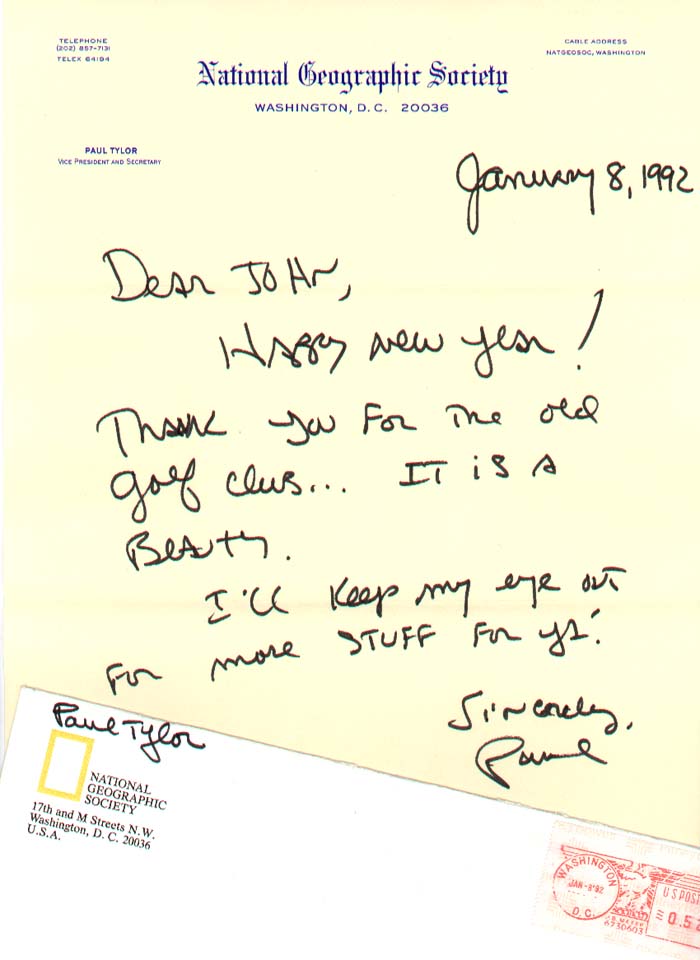 TELEPHONE
(202) 857-7131
TELEX 64194
CABLE ADDRESS
NATGEOSOC, WASHINGTON
National Geographic Society
WASHINGTON, D.C. 20036
PAUL TYLOR
VICE PRESIDENT AND SECRETARY
January 8, 1992
Dear John,
Happy new year!
Thank you for the old
golf club... It is a
Beauty.
I'll keep my eye out
for more stuff for ya!
Sincerely,
Paul
Paul Tylor
NATIONAL
GEOGRAPHIC
SOCIETY
17th and M Streets N.W.
Washington, D. C. 20036
U.S.A.
WASHINGTON
JAN-8'92
D.C.
U S POST
0.5
6730603